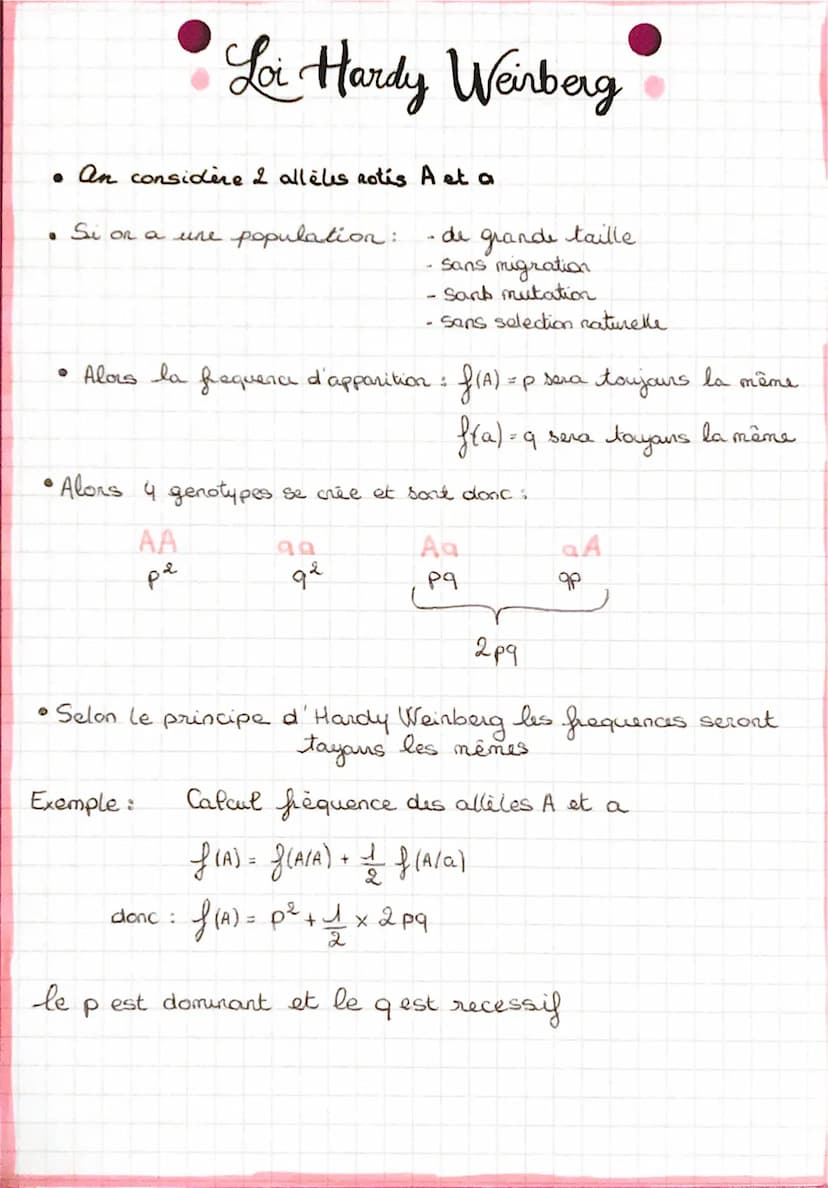 Loi Hardy Weinberg
• On considère 2 allèles notés A et a
• Si on a une population : - de grande taille
- sans migration
- sans mutation
- sans selection naturelle
• Alors la frequence d'apparition : f(A) = p sera toujours la même
f(a) = q sera toujours la même
• Alors 4 genotypes se crée et sont donc :
AA aa Aa aA
p² q² pq qp
2pq
• Selon le principe d'Hardy Weinberg les frequences seront
toujours les mêmes
Exemple : Calcul fréquence des allèles A et a
f(A) = f(A/A) + 1/2 f(A/a)
donc : f(A) = p² + 1/2 × 2pq
le p est dominant et le q est recessif